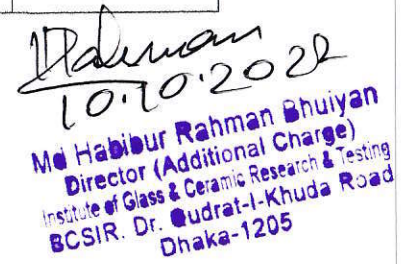 Rahman
10.10.2022
Md Habibur Rahman Bhuiyan
Director (Additional Charge)
Institute of Glass & Ceramic Research & Testing
BCSIR. Dr. Qudrat-I-Khuda Road
Dhaka-1205